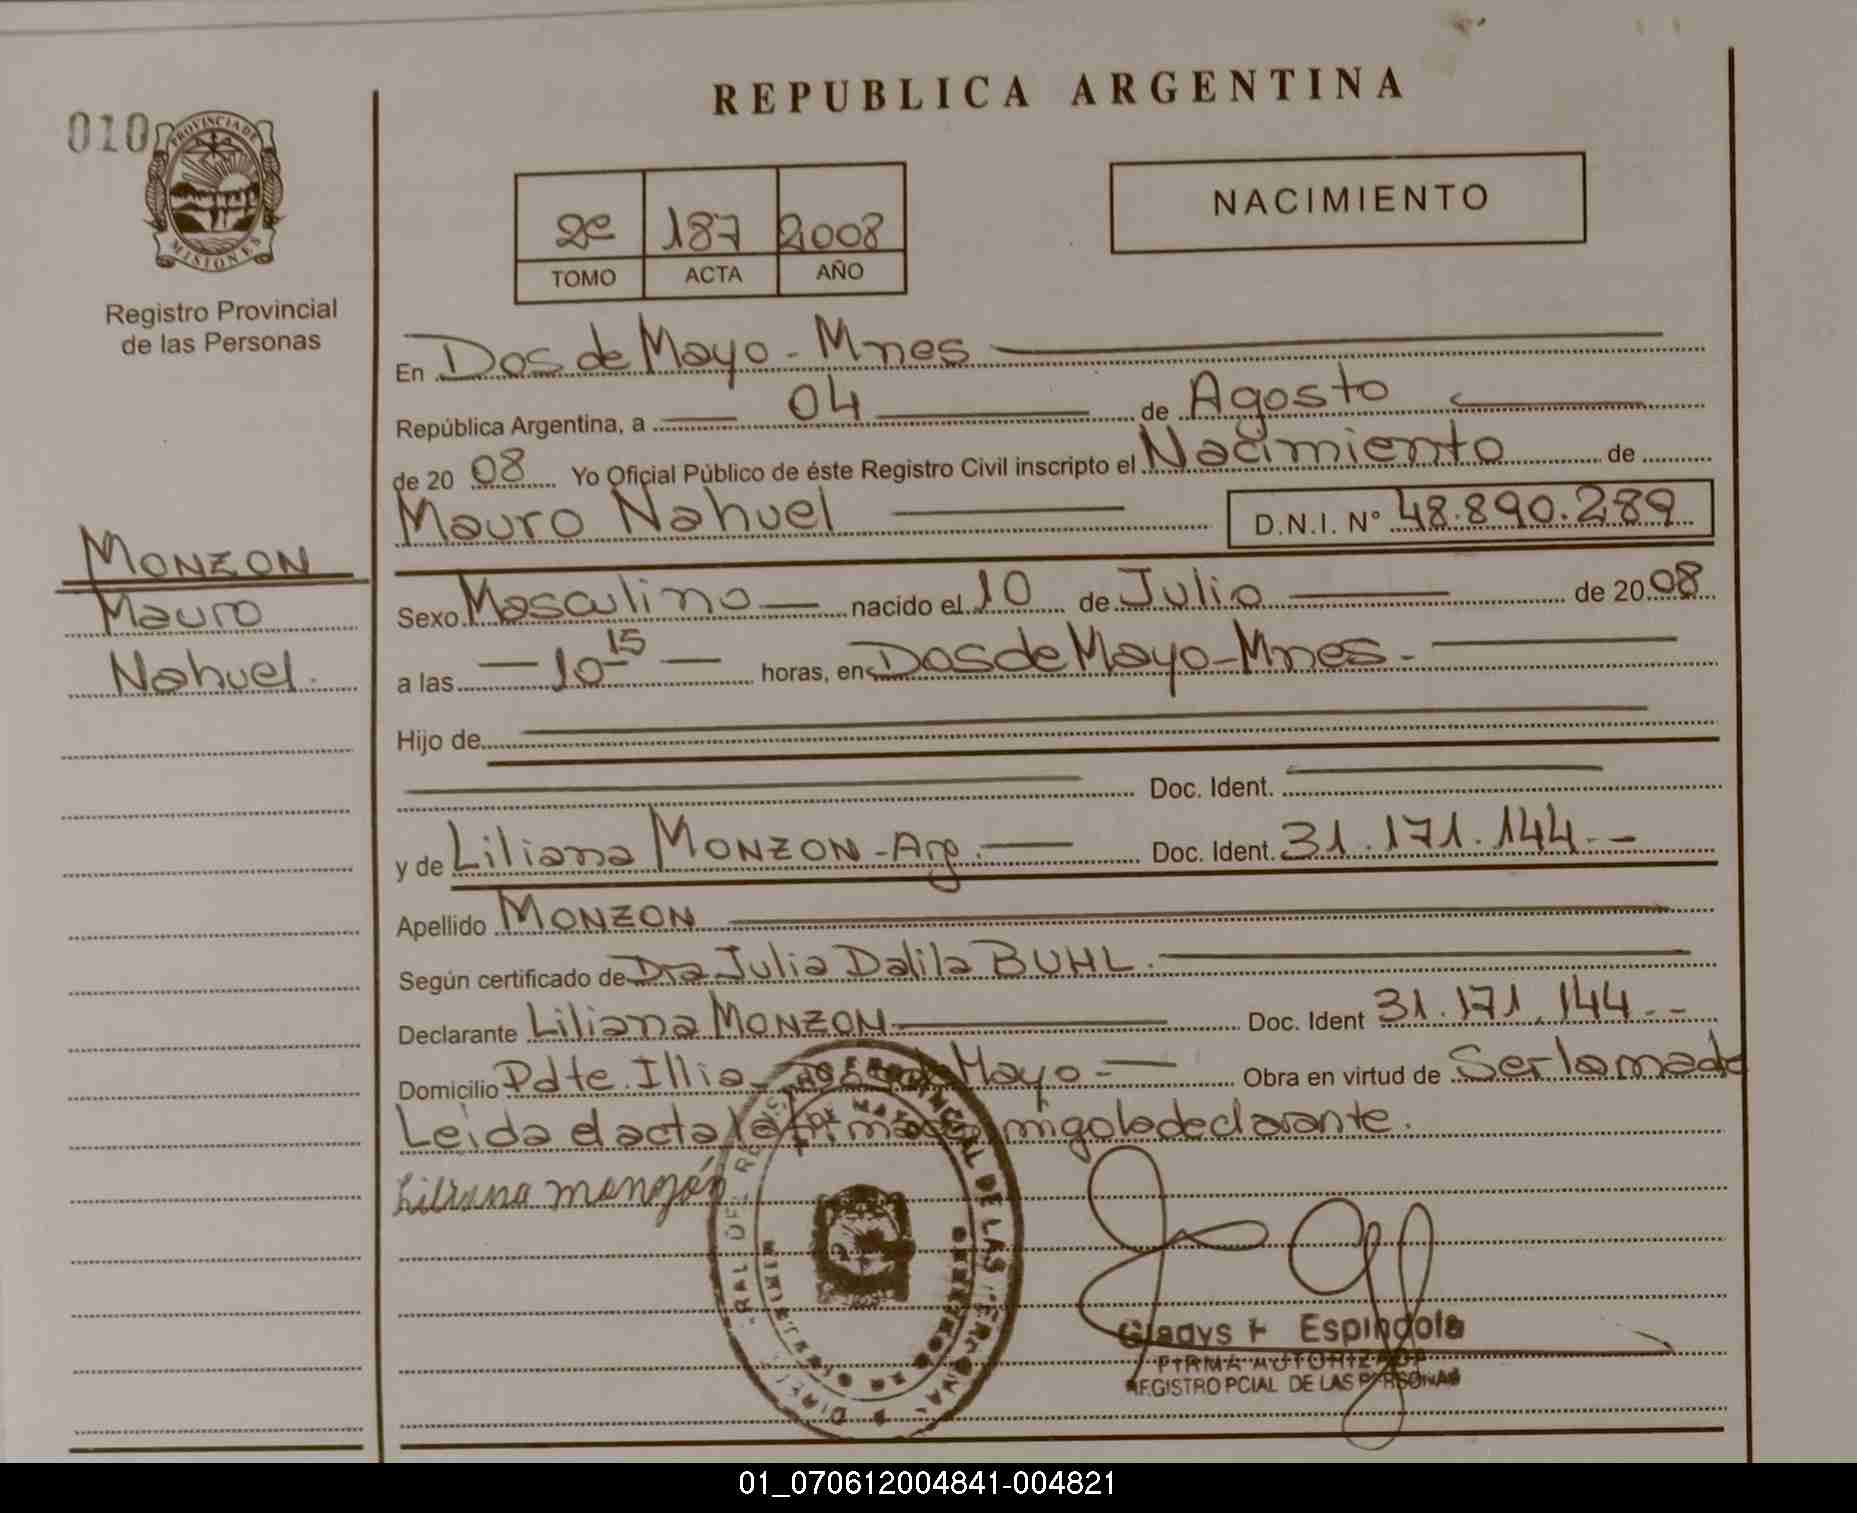 REPUBLICA ARGENTINA
010
PROVINCIA DE
MISIONES
Registro Provincial
de las Personas
2e 187 2008
TOMO ACTA AÑO
NACIMIENTO
En Dos de Mayo - Mnes
República Argentina, a 04 de Agosto
de 20 08 Yo Oficial Público de éste Registro Civil inscripto el Nacimiento de
Mauro Nahuel D.N.I. N° 48.890.289
MONZON
Mauro
Nahuel.
Sexo Masculino nacido el 10 de Julio de 20 08
a las 10 15 horas, en Dos de Mayo - Mnes.
Hijo de
Doc. Ident.
y de Liliana MONZON - Arg. Doc. Ident. 31.171.144
Apellido MONZON
Según certificado de Dra Julia Dalila BUHL.
Declarante Liliana MONZON Doc. Ident 31.171.144
Domicilio Pdte. Illia Mayo Obra en virtud de Ser la madre
Leida el acta la firma migo la declarante.
Liliana monzón
Gladys Espindola
FIRMA AUTORIZADA
REGISTRO PCIAL DE LAS PERSONAS
01_070612004841-004821